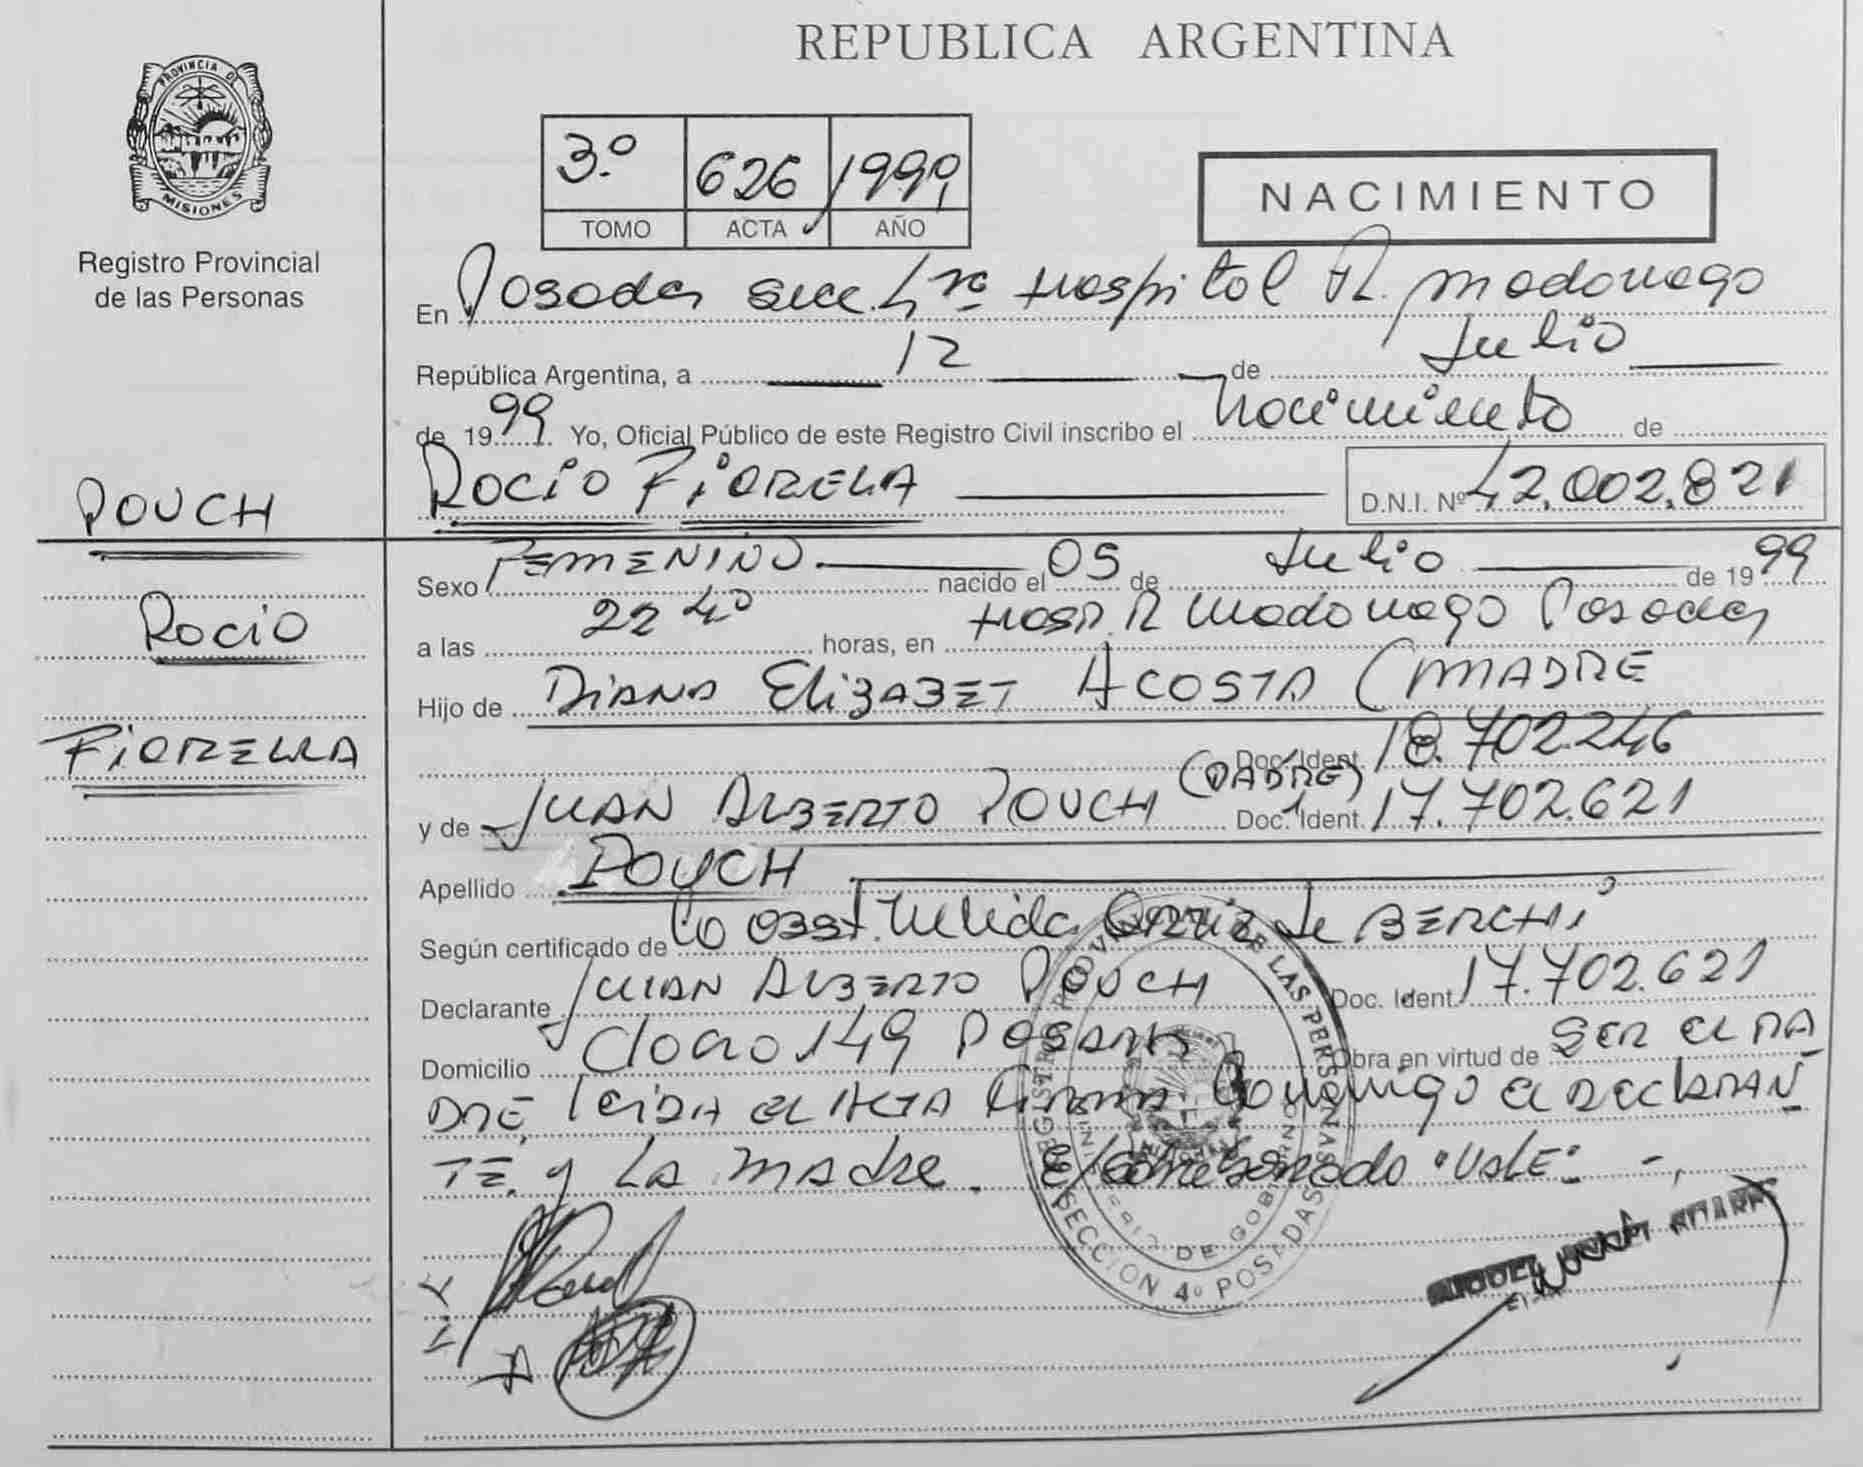 REPUBLICA ARGENTINA
PROVINCIA DE
MISIONES
Registro Provincial
de las Personas
3º 626 1999
TOMO ACTA AÑO
NACIMIENTO
En Posadas secc. 4ta Hospital R. Madariaga
República Argentina, a 12 de Julio
de 1999. Yo, Oficial Público de este Registro Civil inscribo el nacimiento de
POUCH
ROCIO FIORELLA D.N.I. Nº 42.002.821
Sexo FEMENINO nacido el 05 de Julio de 1999
Rocio
a las 22 40 horas, en Hosp. R Madariaga Posadas
Hijo de DIANA ELIZABET ACOSTA (MADRE
FIORELLA
Doc. Ident. 18.702.246
y de JUAN ALBERTO POUCH (PADRE) Doc. Ident. 17.702.621
Apellido POUCH
Según certificado de la Obst. Nelida de
Declarante JUAN ALBERTO POUCH Doc. Ident. 17.702.621
Domicilio 149 POSADAS Obra en virtud de SER EL PA
DRE, leida el ACTA firma conmigo el DECLARAN
TE, y LA madre. E/sobreborrado "VALE" -
REGISTRO PROVINCIAL DE LAS PERSONAS
MINISTERIO DE GOBIERNO
SECCION 4º POSADAS